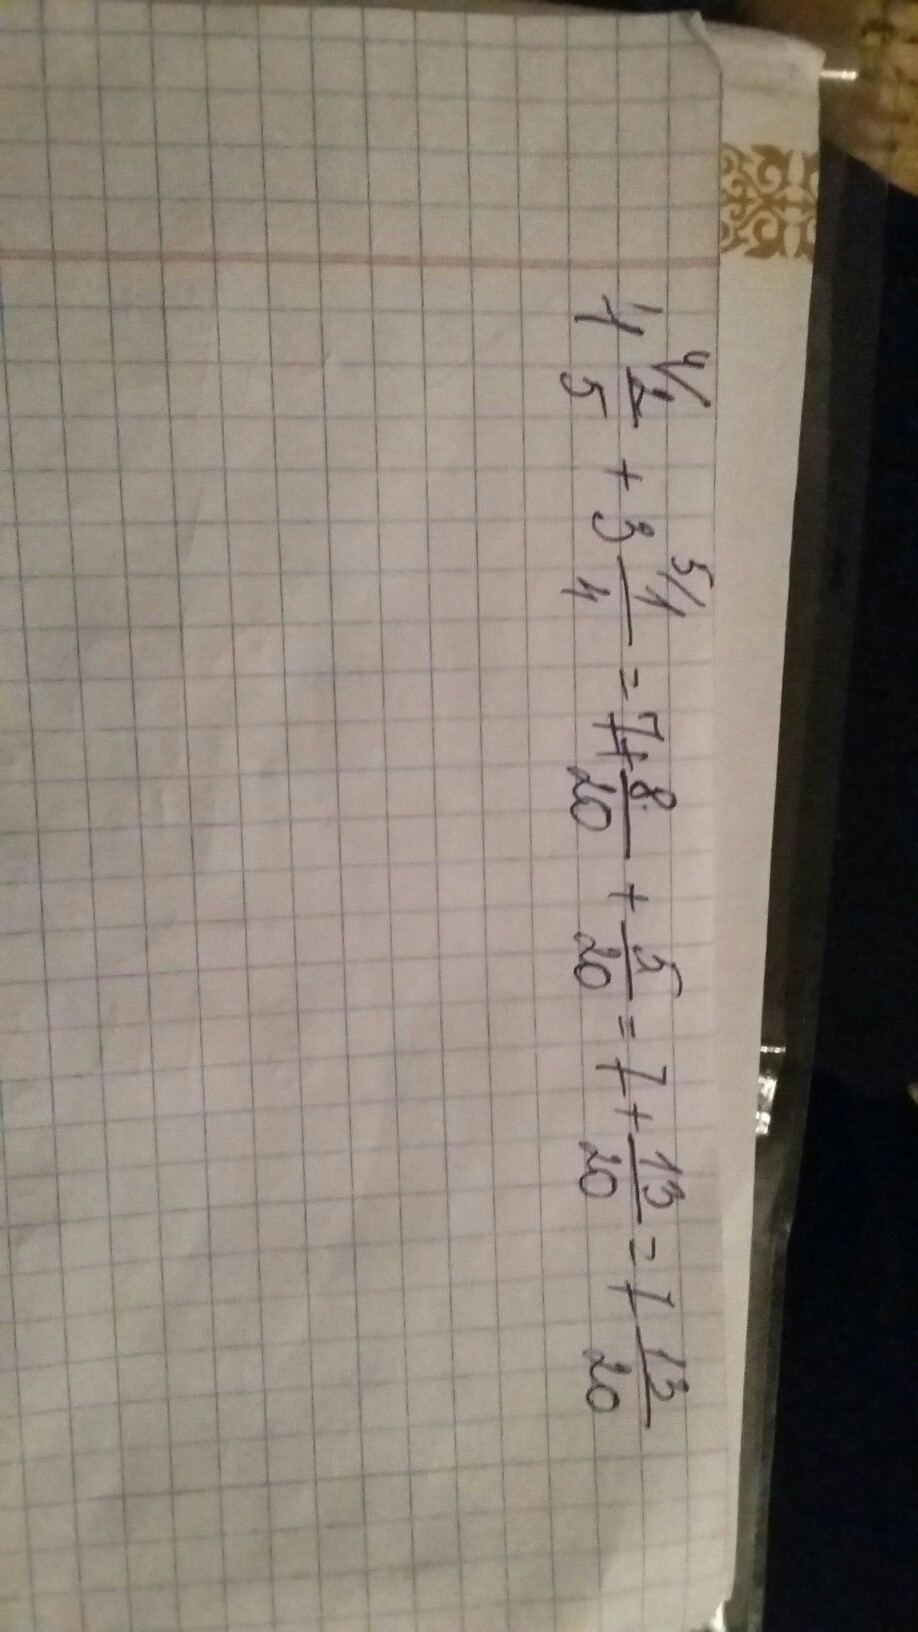 4 ⁴⁄ 2/5 + 3 ⁵⁄ 1/4 = 7 + 8/20 + 5/20 = 7 + 13/20 = 7 13/20